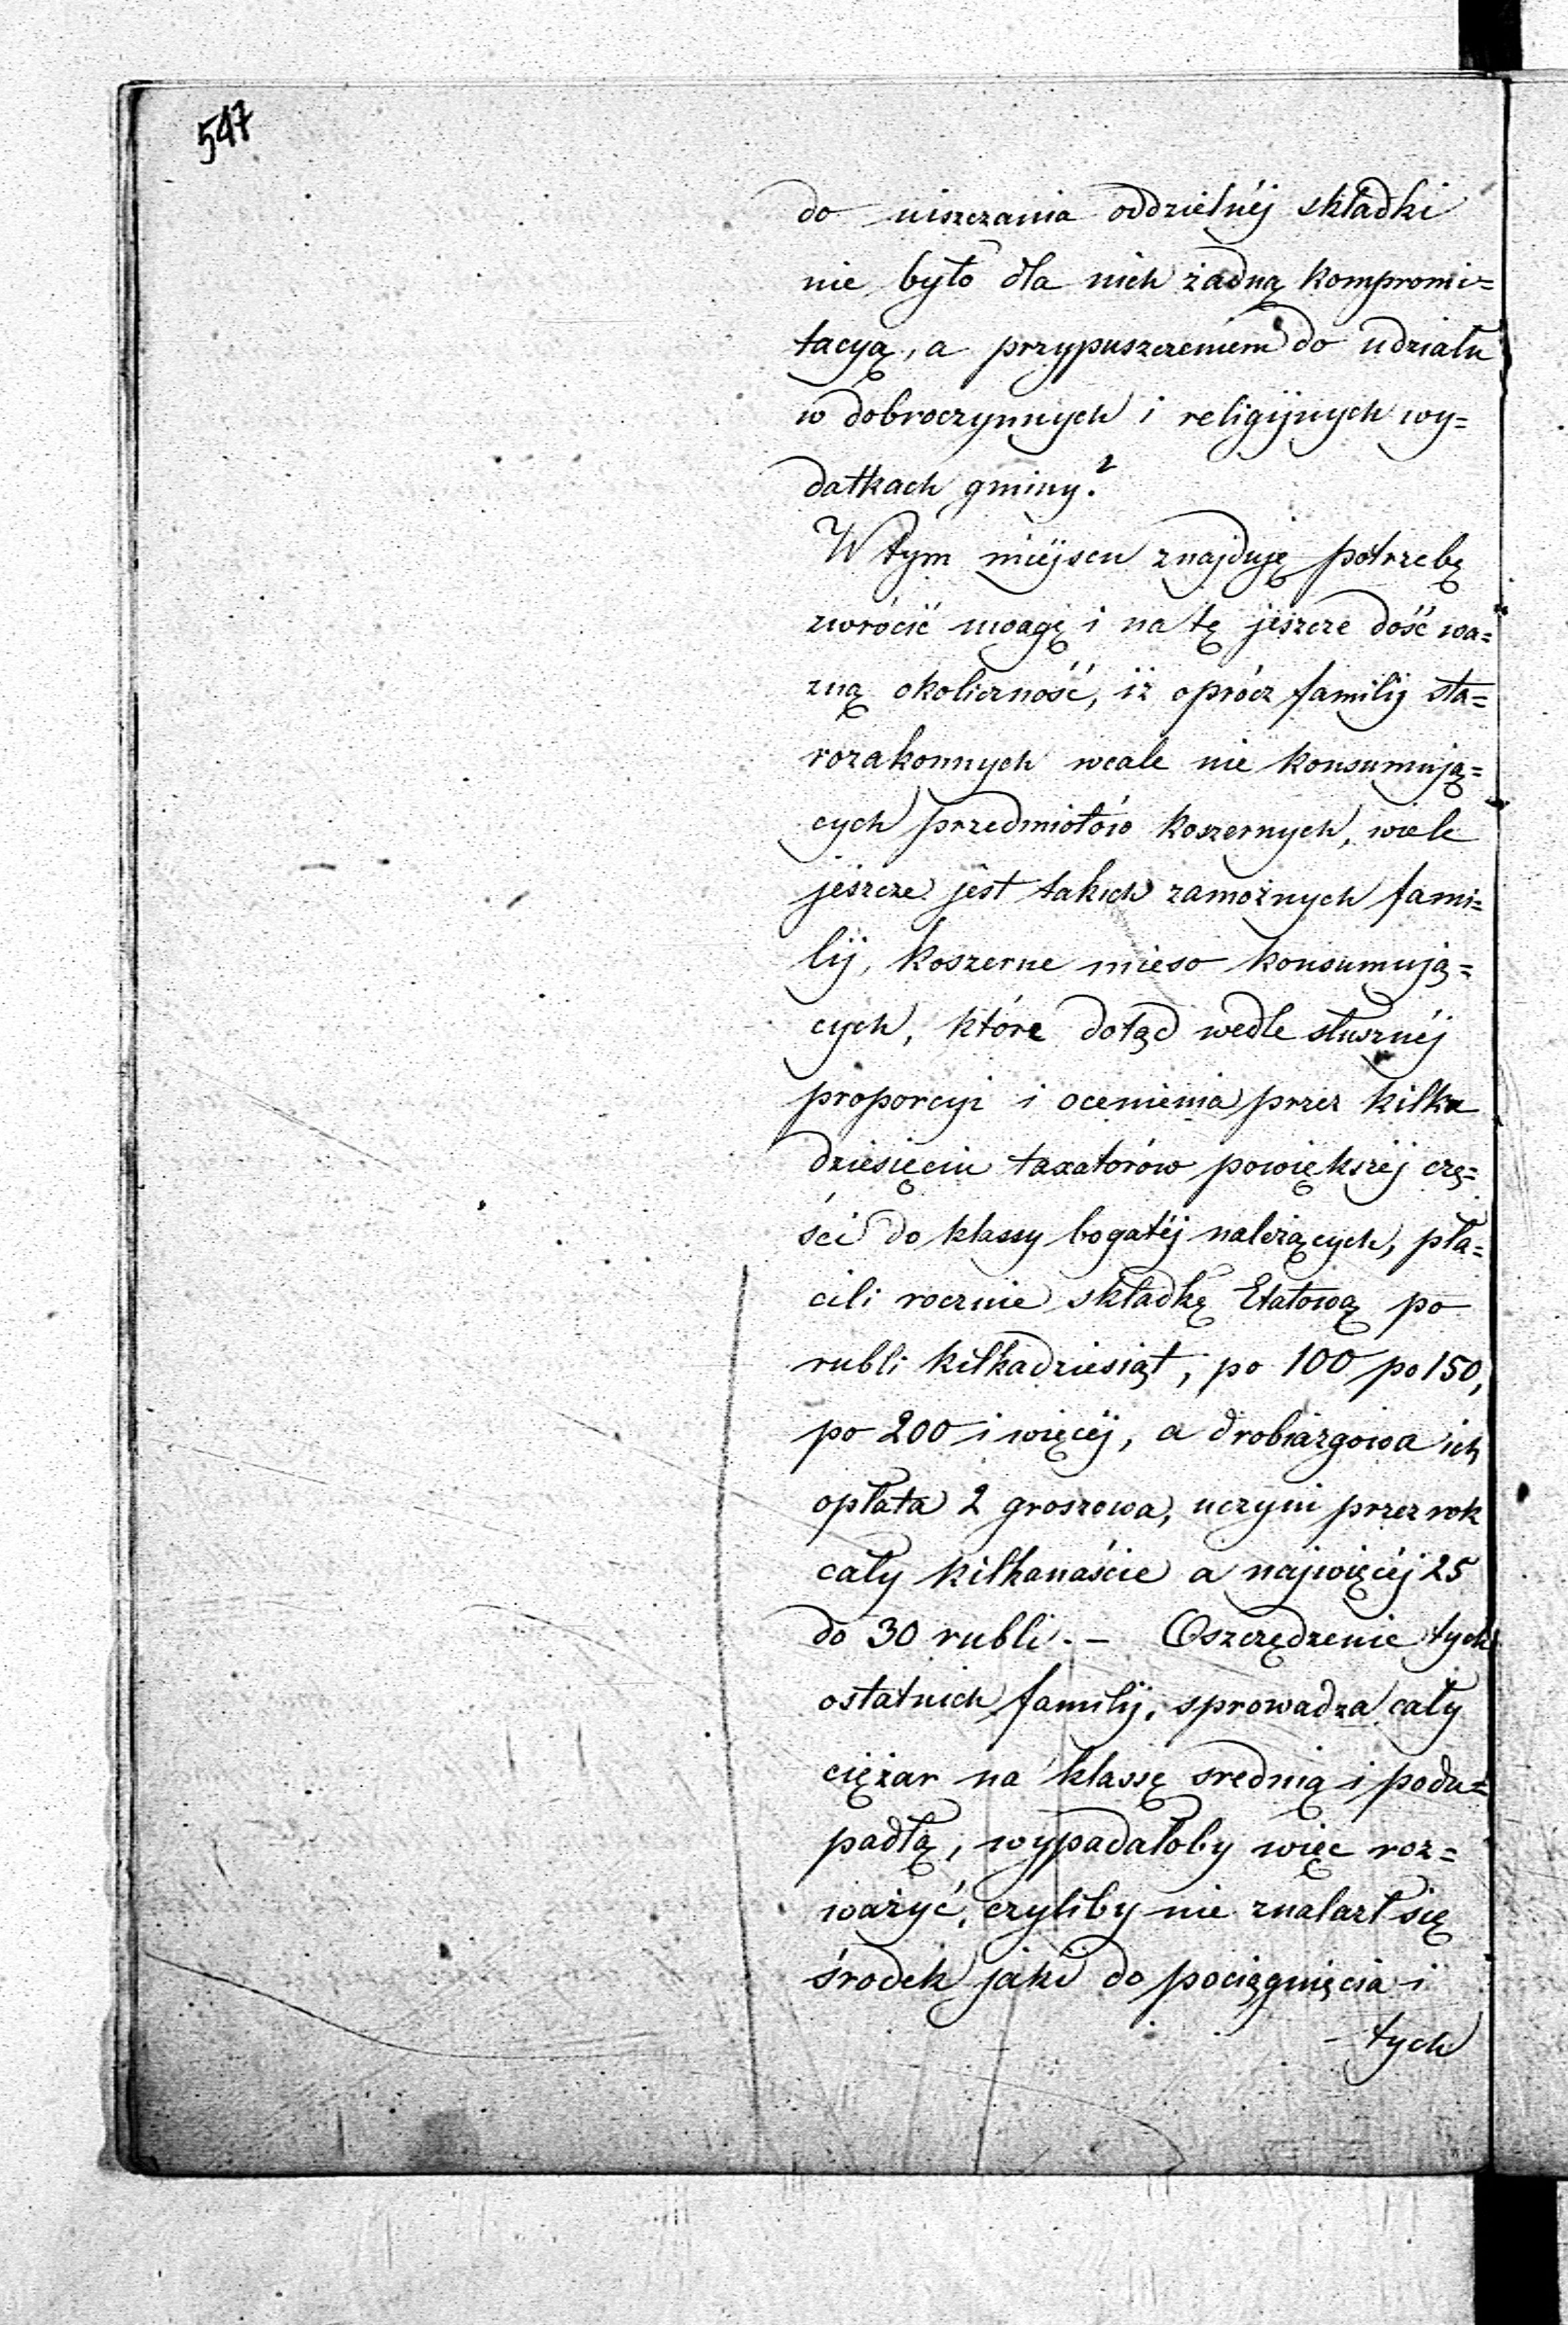 547
do uiszczania oddzielnéj składki
nie było dla nich żadną kompromi=
tacyą, a przypuszczeniem do udziału
w dobroczynnych i religijnych wy=
datkach gminy?
W tym miejscu znajduję potrzebę
zwrócić uwagę i na tę jeszcze dość wa=
zną okoliczność, iż oprócz familij sta=
rozakonnych wcale nie konsumują=
cych przedmiotów koszernych, wiele
jeszcze jest takich zamożnych fami=
lij, koszerne mieso konsumują=
cych, które dotąd wedle słusznéj
proporcyi i ocenienia przez kilka
dziesięciu taxatorów powiększéj czę=
ści do klassy bogatéj należących, pła=
cili rocznie składkę Etatową po
rubli kilkadziesiąt, po 100 po 150,
po 200 i więcéj, a drobiazgowa ich
opłata 2 groszowa, uczyni przez rok
cały kilkanaście a najwięcéj 25
do 30 rubli. – Oszczędzenie tych
ostatnich familij, sprowadza cały
ciężar na klassę srednią i podu=
padłą, wypadałoby więc roz=
ważyć, czyliby nie znalazł się
środek jaki do pociągnięcia i
tych